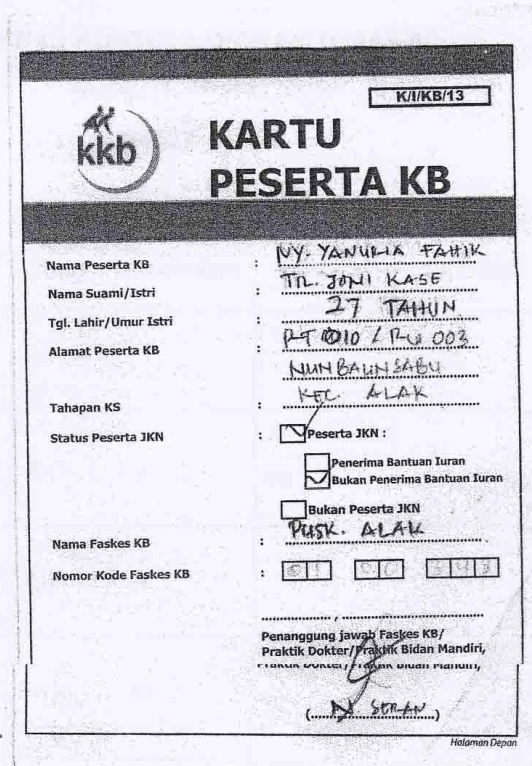 K/I/KB/13
kkb
KARTU
PESERTA KB
Nama Peserta KB : NY. YANURIA FAHIK
Nama Suami/Istri : TN. JONI KASE
Tgl. Lahir/Umur Istri : 27 TAHUN
Alamat Peserta KB : RT 010 / RW 003
NUNBAUN SABU
Tahapan KS : KEC. ALAK
Status Peserta JKN : Peserta JKN :
Penerima Bantuan Iuran
Bukan Penerima Bantuan Iuran
Bukan Peserta JKN
Nama Faskes KB : PUSK. ALAK
Nomor Kode Faskes KB :
Penanggung jawab Faskes KB/
Praktik Dokter/Praktik Bidan Mandiri,
Praktik Dokter/Praktik Bidan Mandiri,
( SERAN )
Halaman Depan